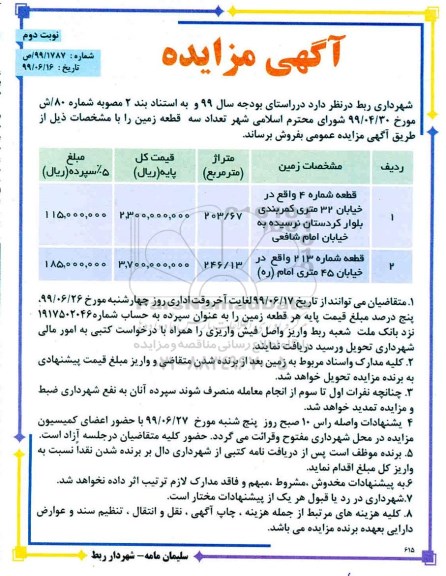 نوبت دوم
آگهی مزایده
شماره : ۹۹/۱۷۸۷/ص
تاریخ : ۹۹/۰۶/۱۶
شهرداری ربط درنظر دارد درراستای بودجه سال ۹۹ و به استناد بند ۲ مصوبه شماره ۸۰/ش
مورخ ۹۹/۰۴/۳۰ شورای محترم اسلامی شهر تعداد سه قطعه زمین را با مشخصات ذیل از
طریق آگهی مزایده عمومی بفروش برساند.
ردیف مشخصات زمین متراژ (مترمربع) قیمت کل پایه(ریال) مبلغ ۵٪سپرده(ریال)
۱ قطعه شماره ۴ واقع در خیابان ۳۲ متری کمربندی بلوار کردستان نرسیده به خیابان امام شافعی ۲۰۳/۶۷ ۲,۳۰۰,۰۰۰,۰۰۰ ۱۱۵,۰۰۰,۰۰۰
۲ قطعه شماره ۲۱۳ واقع در خیابان ۴۵ متری امام (ره) ۲۴۶/۱۳ ۳,۷۰۰,۰۰۰,۰۰۰ ۱۸۵,۰۰۰,۰۰۰
۱. متقاضیان می توانند از تاریخ ۹۹/۰۶/۱۷لغایت آخر وقت اداری روز چهارشنبه مورخ ۹۹/۰۶/۲۶،
پنج درصد مبلغ قیمت پایه هر قطعه زمین را به عنوان سپرده به حساب شماره۱۹۱۷۵۰۲۰۴۶
نزد بانک ملت شعبه ربط واریز واصل فیش واریزی را همراه با درخواست کتبی به امور مالی
شهرداری تحویل ورسید دریافت نمایند.
۲. کلیه مدارک واسناد مربوط به زمین بعد از برنده شدن متقاضی و واریز مبلغ قیمت پیشنهادی
به برنده مزایده تحویل خواهد شد.
۳. چنانچه نفرات اول تا سوم از انجام معامله منصرف شوند سپرده آنان به نفع شهرداری ضبط
و مزایده تمدید خواهد شد.
۴ یشنهادات واصله راس ۱۰ صبح روز پنج شنبه مورخ ۹۹/۰۶/۲۷ با حضور اعضای کمیسیون
مزایده در محل شهرداری مفتوح وقرائت می گردد. حضور کلیه متقاضیان درجلسه آزاد است.
۵. برنده موظف است پس از دریافت نامه کتبی از شهرداری دال بر برنده شدن نقداً نسبت به
واریز کل مبلغ اقدام نماید.
۶.به پیشنهادات مخدوش ،مشروط ،مبهم و فاقد مدارک لازم ترتیب اثر داده نخواهد شد.
۷.شهرداری در رد یا قبول هر یک از پیشنهادات مختار است.
۸. کلیه هزینه های مرتبط از جمله هزینه ، چاپ آگهی ، نقل و انتقال ، تنظیم سند و عوارض
دارایی بعهده برنده مزایده می باشد.
۶۱۵
سلیمان مامه – شهردار ربط